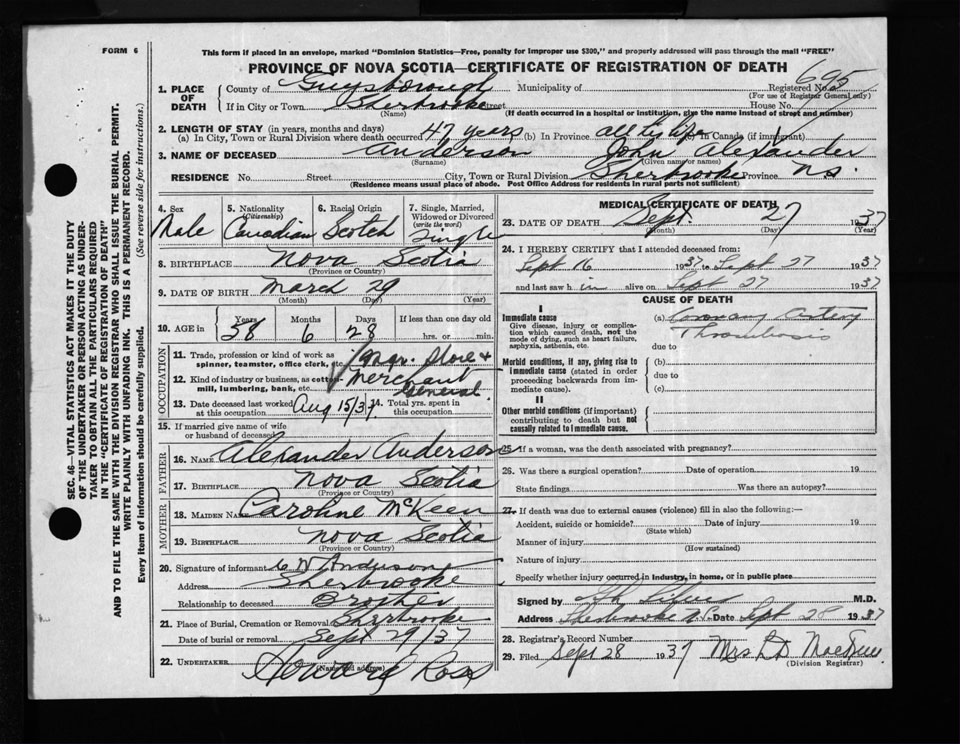 FORM 6
This form if placed in an envelope, marked "Dominion Statistics—Free, penalty for improper use $300," and properly addressed will pass through the mail "FREE"
PROVINCE OF NOVA SCOTIA—CERTIFICATE OF REGISTRATION OF DEATH
695
1. PLACE OF DEATH
County of Guysborough Municipality of Registered No.
(For use of Registrar General only)
If in City or Town Sherbrooke Street House No.
(Name) (If death occurred in a hospital or institution, give the name instead of street and number)
2. LENGTH OF STAY (in years, months and days)
(a) In City, Town or Rural Division where death occurred 47 years (b) In Province all his life (c) In Canada (if immigrant)
3. NAME OF DECEASED Anderson John Alexander
(Surname) (Given name or names)
RESIDENCE No. Street City, Town or Rural Division Sherbrooke Province N.S.
(Residence means usual place of abode. Post Office Address for residents in rural parts not sufficient)
4. Sex
Male
5. Nationality
(Citizenship)
Canadian
6. Racial Origin
Scotch
7. Single, Married, Widowed or Divorced
(write the word)
Single
8. BIRTHPLACE Nova Scotia
(Province or Country)
9. DATE OF BIRTH March 29
(Month) (Day) (Year)
10. AGE in
Years Months Days If less than one day old
58 6 28 hrs. or min.
OCCUPATION
11. Trade, profession or kind of work as spinner, teamster, office clerk, etc. Store +
12. Kind of industry or business, as cotton-mill, lumbering, bank, etc. Merchant General
13. Date deceased last worked at this occupation Aug 15/37
14. Total yrs. spent in this occupation
15. If married give name of wife or husband of deceased
FATHER
16. NAME Alexander Anderson
17. BIRTHPLACE Nova Scotia
(Province or Country)
MOTHER
18. MAIDEN NAME Caroline McKeen
19. BIRTHPLACE Nova Scotia
(Province or Country)
20. Signature of informant Anderson
Address Sherbrooke
Relationship to deceased Brother
21. Place of Burial, Cremation or Removal Sherbrooke
Date of burial or removal Sept 29/37
22. UNDERTAKER Howard Ross
(Name and address)
MEDICAL CERTIFICATE OF DEATH
23. DATE OF DEATH Sept. 27 1937
(Month) (Day) (Year)
24. I HEREBY CERTIFY that I attended deceased from:
Sept 16 1937 to Sept 27 1937
and last saw him alive on Sept 27 1937
CAUSE OF DEATH
I
Immediate cause
Give disease, injury or complication which caused death, not the mode of dying, such as heart failure, asphyxia, asthenia, etc.
(a) Coronary Artery
Thrombosis
due to
Morbid conditions, if any, giving rise to immediate cause (stated in order proceeding backwards from immediate cause).
(b)
due to
(c)
II
Other morbid conditions (if important) contributing to death but not causally related to immediate cause.
25. If a woman, was the death associated with pregnancy?
26. Was there a surgical operation? Date of operation 19
State findings Was there an autopsy?
27. If death was due to external causes (violence) fill in also the following:—
Accident, suicide or homicide? Date of injury 19
(State which)
Manner of injury
(How sustained)
Nature of injury
Specify whether injury occurred in industry, in home, or in public place
Signed by M.D.
Address Sherbrooke Date Sept 28 1937
28. Registrar's Record Number
29. Filed Sept 28 1937 Mrs
(Division Registrar)
SEC. 46—VITAL STATISTICS ACT MAKES IT THE DUTY
OF THE UNDERTAKER OR PERSON ACTING AS UNDERTAKER TO OBTAIN ALL THE PARTICULARS REQUIRED
IN THE "CERTIFICATE OF REGISTRATION OF DEATH"
AND TO FILE THE SAME WITH THE DIVISION REGISTRAR WHO SHALL ISSUE THE BURIAL PERMIT.
WRITE PLAINLY WITH UNFADING INK. THIS IS A PERMANENT RECORD.
Every item of information should be carefully supplied. (See reverse side for instructions.)